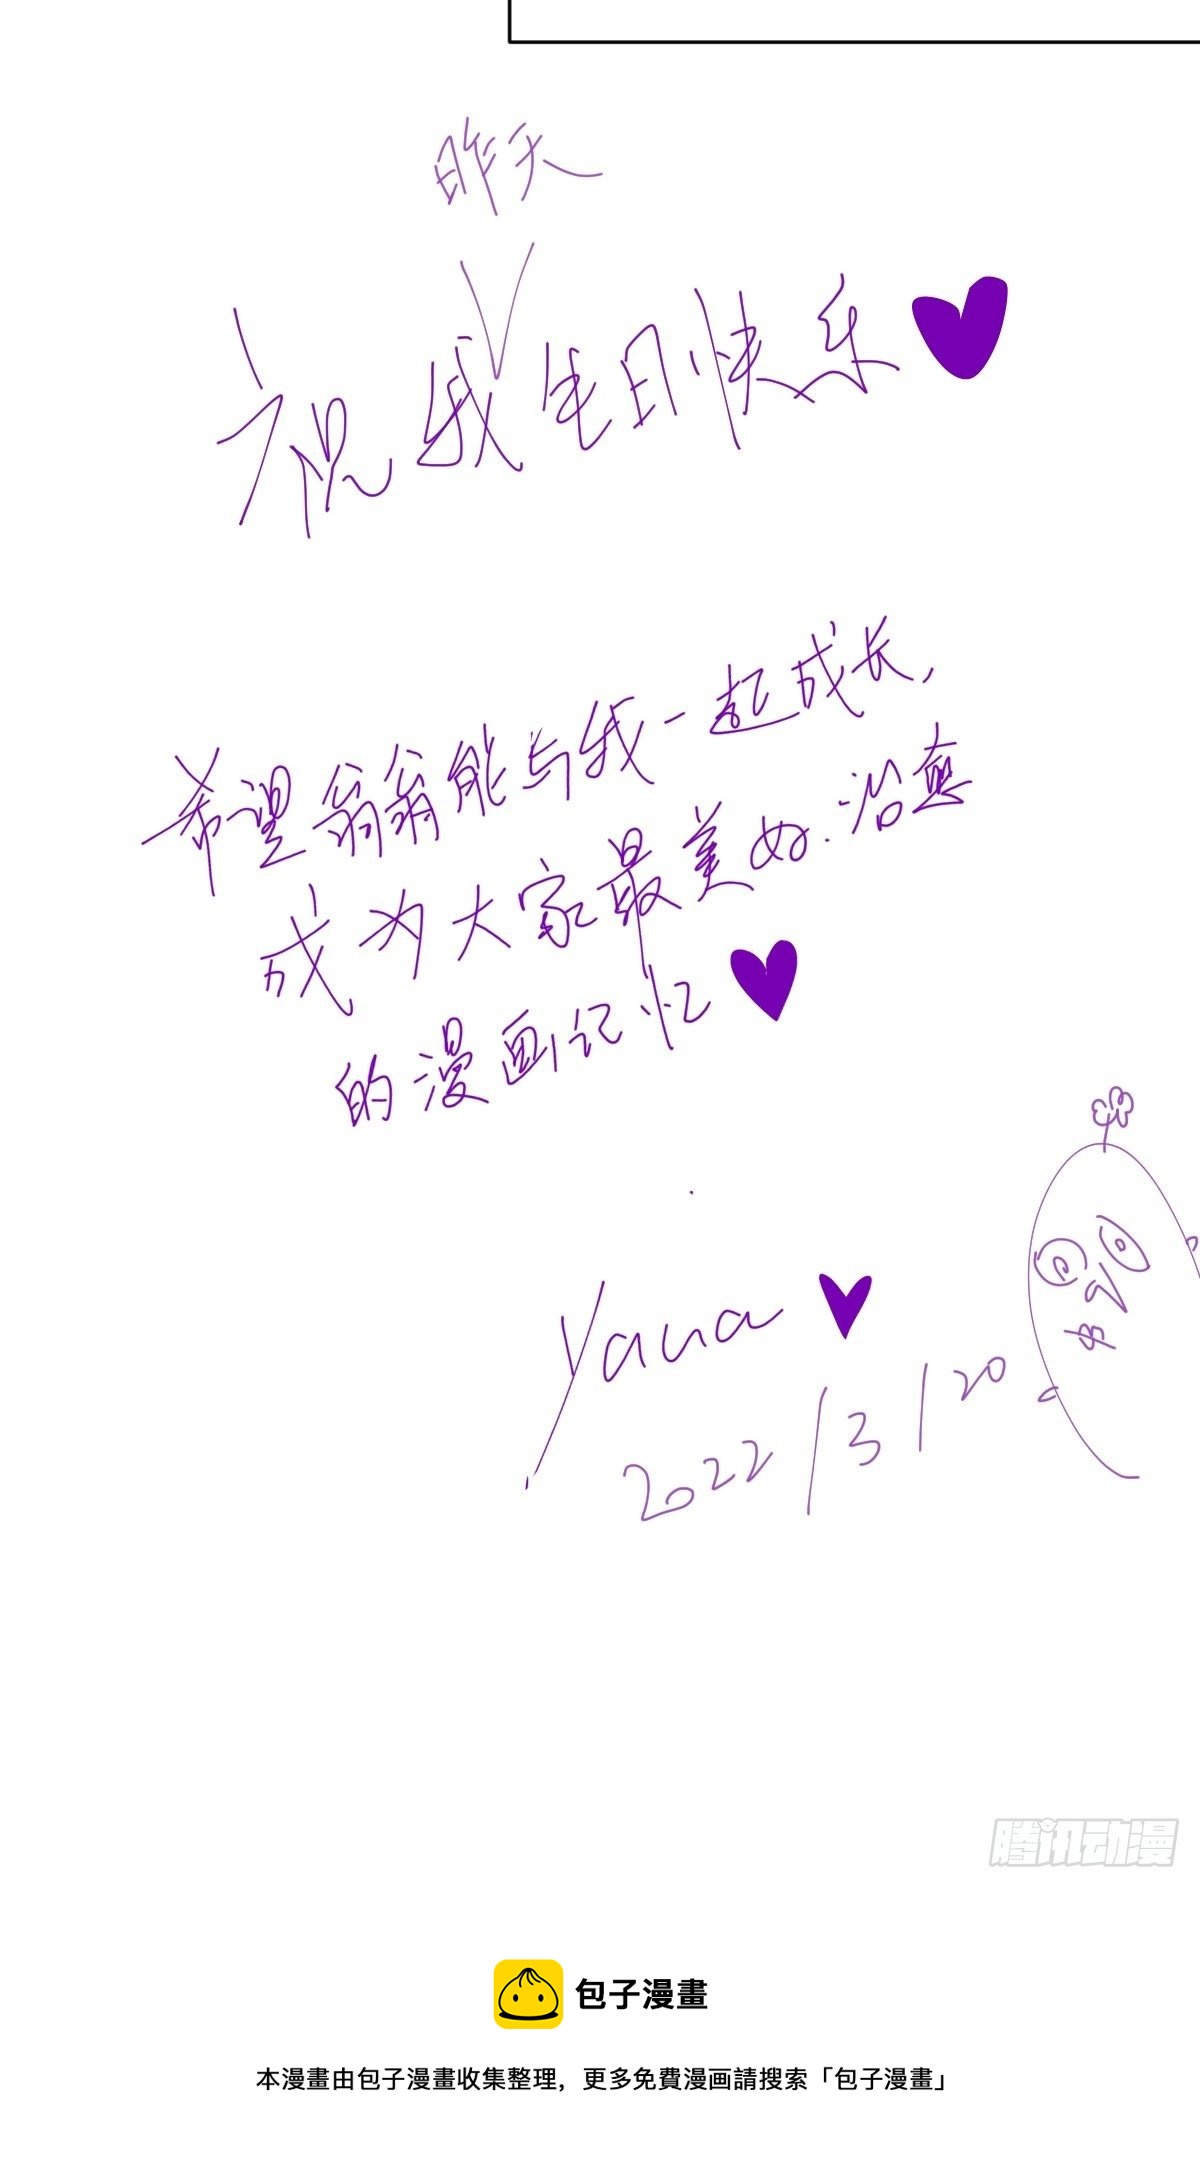 昨天
祝我生日快乐
希望翁翁能与我一起成长,
成为大家最美好.治愈
的漫画记忆
Yana
2022/3/20
腾讯动漫
包子漫畫
本漫畫由包子漫畫收集整理，更多免費漫画請搜索「包子漫畫」